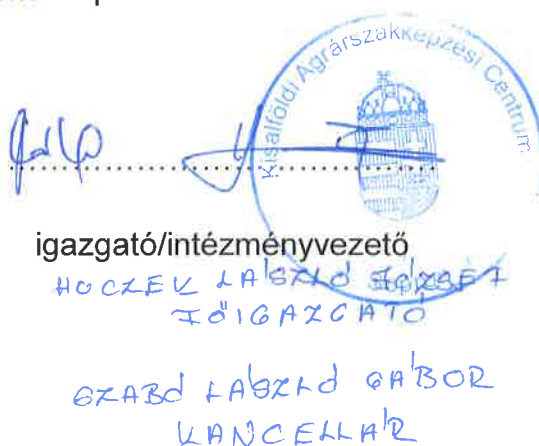 Kisalföldi Agrárszakképzési Centrum
igazgató/intézményvezető
HOCZEK LÁSZLÓ JÓZSEF
FŐIGAZGATÓ
SZABÓ LÁSZLÓ GÁBOR
KANCELLÁR